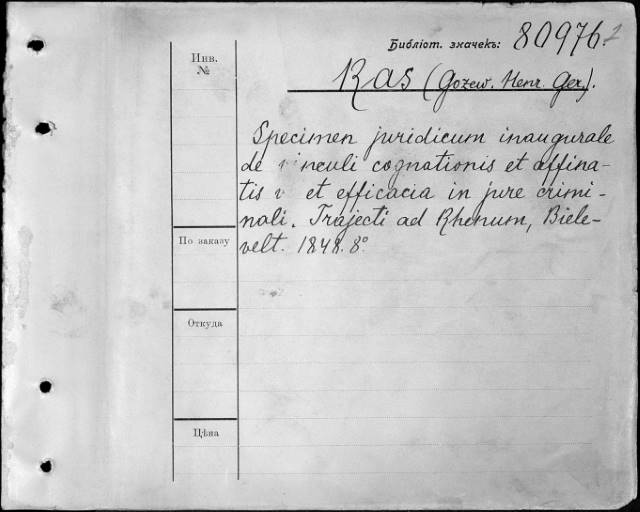 Библіот. значекъ: 80976.2
Инв.
№
Kas (Gozew. Henr. Ger.).
Specimen juridicum inaugurale
de vinculi cognationis et affina-
tis et efficacia in jure crimi-
nali. Trajecti ad Rhenum, Biele-
velt. 1848. 8°
По заказу
Откуда
Цѣна